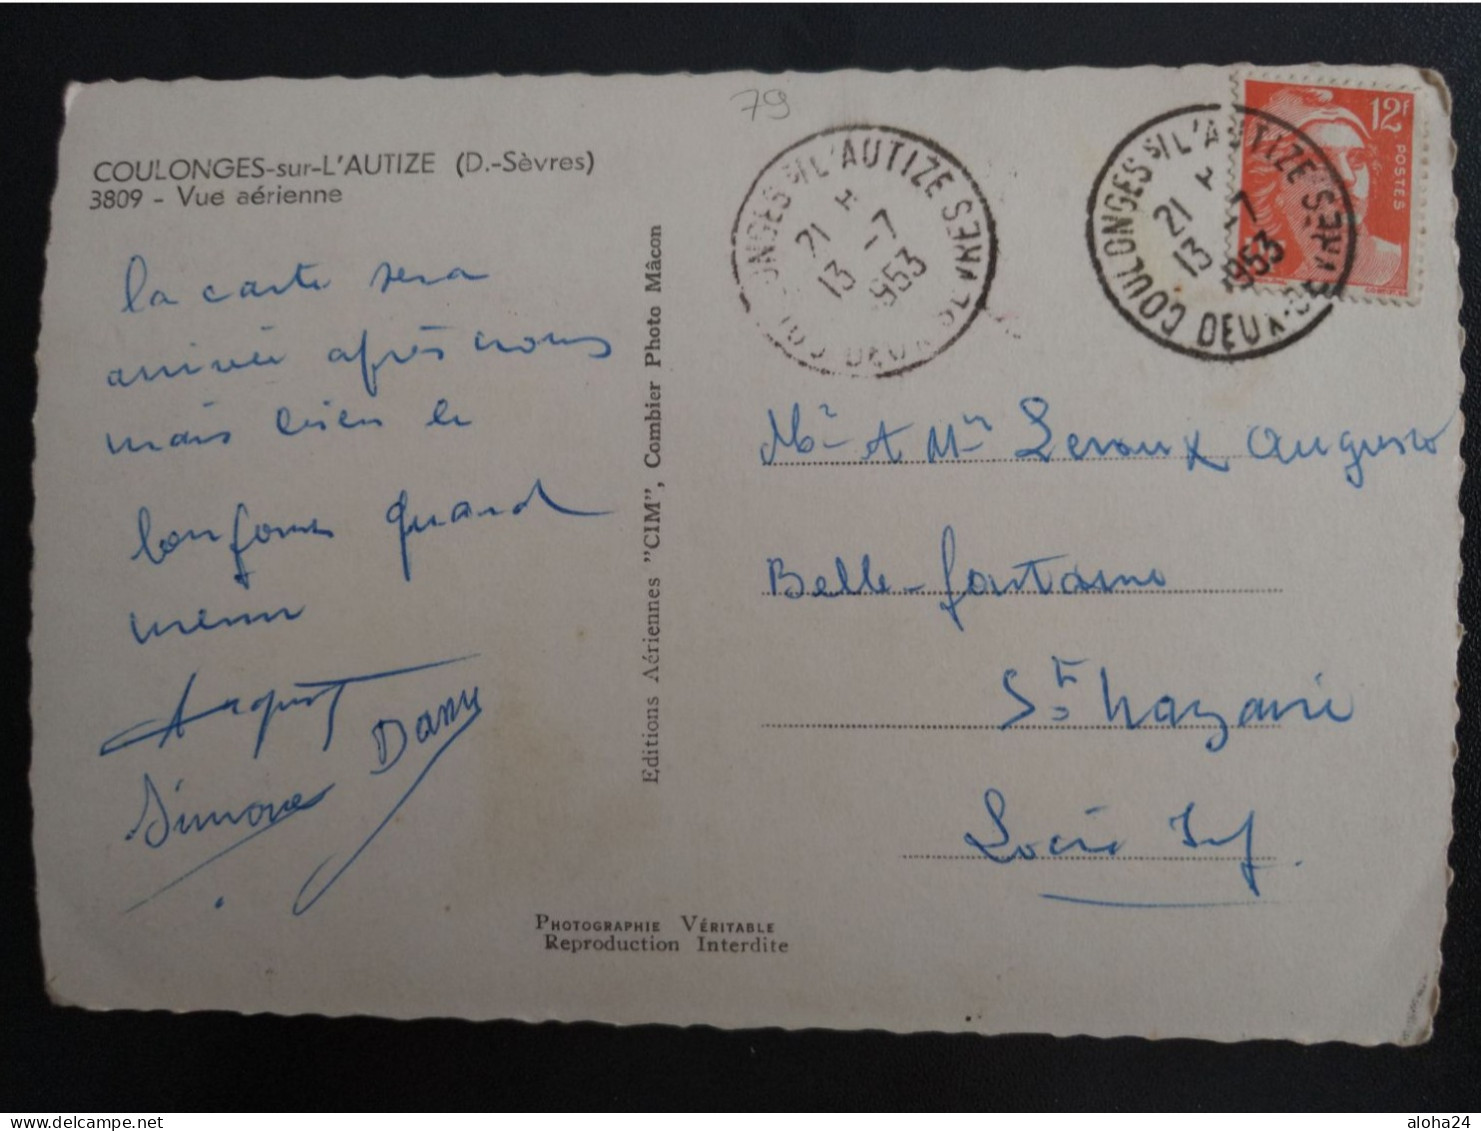 79
COULONGES-sur-L'AUTIZE (D.-Sèvres)
3809 - Vue aérienne
la carte sera
arrivée après nous
mais bien le
bonjour quand
meme
Simone Dany
Editions Aériennes "CIM", Combier Photo Mâcon
PHOTOGRAPHIE VÉRITABLE
Reproduction Interdite
COULONGES S/ L'AUTIZE DEUX-SEVRES
21 H
13 -7
1953
COULONGES S/ L'AUTIZE DEUX-SEVRES
21 H
13 -7
1953
12F
POSTES
Mr & Mm Leroux
Belle-fontaine
St Nazaire
Loire Inf.
aloha24